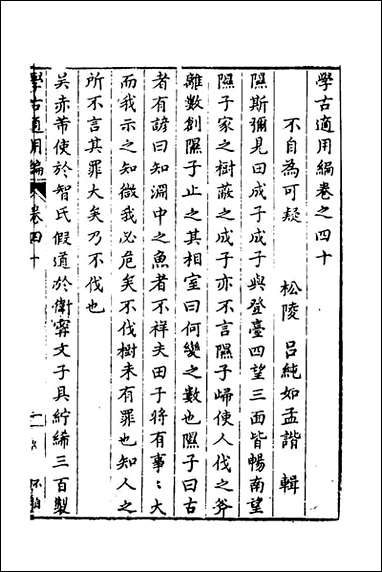 學古適用編卷之四十
不自為可疑
松陵 呂純如孟諧 輯
隰斯彌見田成子成子與登臺四望三面皆暢南望
隰子家之樹蔽之成子亦不言隰子歸使人伐之斧
離數創隰子止之其相室曰何變之數也隰子曰古
者有諺曰知淵中之魚者不祥夫田子將有事〻大
而我示之知微我必危矣不伐樹未有罪也知人之
所不言其罪大矣乃不伐也
吴赤巿使於智氏假道於衛甯文子具紵絺三百製
學古適用編
卷四十
一